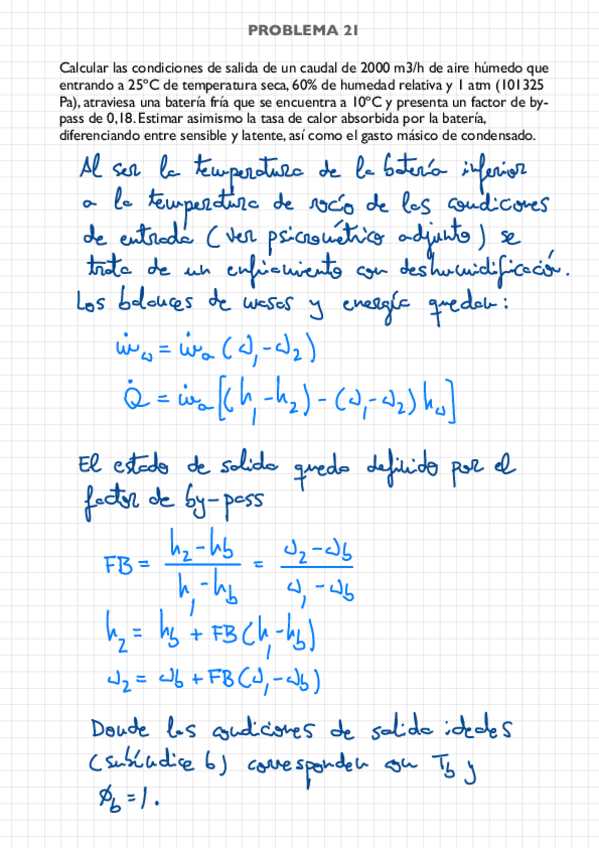 PROBLEMA 21
Calcular las condiciones de salida de un caudal de 2000 m3/h de aire húmedo que
entrando a 25ºC de temperatura seca, 60% de humedad relativa y 1 atm (101325
Pa), atraviesa una batería fría que se encuentra a 10ºC y presenta un factor de by-
pass de 0,18. Estimar asimismo la tasa de calor absorbida por la batería,
diferenciando entre sensible y latente, así como el gasto másico de condensado.
Al ser la temperatura de la batería inferior
a la temperatura de rocío de las condiciones
de entrada (ver psicrométrico adjunto) se
trata de un enfriamiento con deshumidificación.
Los balances de masas y energía quedan:
ṁω = ṁa (ω1 - ω2)
Q̇ = ṁa [(h1 - h2) - (ω1 - ω2) hω]
El estado de salida queda definido por el
factor de by-pass
FB = (h2 - hb)/(h1 - hb) = (ω2 - ωb)/(ω1 - ωb)
h2 = hb + FB(h1 - hb)
ω2 = ωb + FB(ω1 - ωb)
Donde las condiciones de salida ideales
(subíndice b) corresponden con Tb y
ϕb = 1.